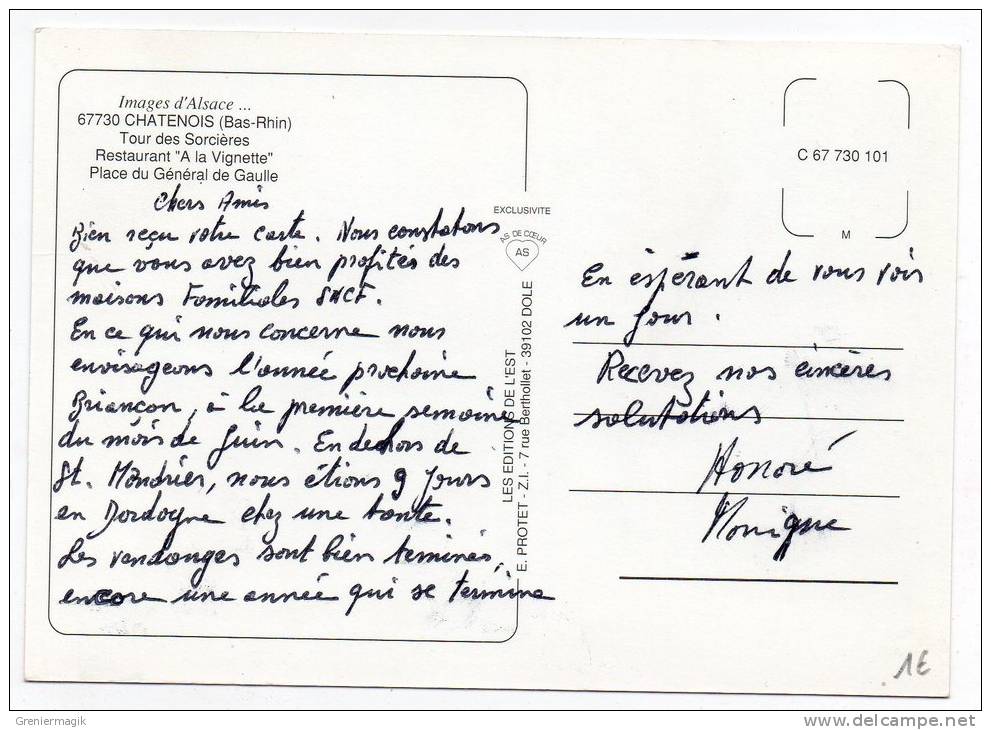 Images d'Alsace ...
67730 CHATENOIS (Bas-Rhin)
Tour des Sorcières
Restaurant "A la Vignette"
Place du Général de Gaulle
Chers Amis
Bien reçu votre carte. Nous constatons
que vous avez bien profités des
maisons Familiales SNCF.
En ce qui nous concerne nous
envisageons l'année prochaine
Briançon, à la première semaine
du mois de Juin. En dehors de
St. Mandrier, nous étions 9 Jours
en Dordogne chez une tante.
Les vendanges sont bien teminés,
encore une année qui se termine
EXCLUSIVITE
AS DE CŒUR
AS
LES EDITIONS DE L'EST
E. PROTET - Z.I. - 7 rue Berthollet - 39102 DOLE
C 67 730 101
M
En éspérant de vous voir
un Jour.
Recevez nos sincères
salutations
Honoré
Monique
1€
Greniermagik
http://www.delcampe.net